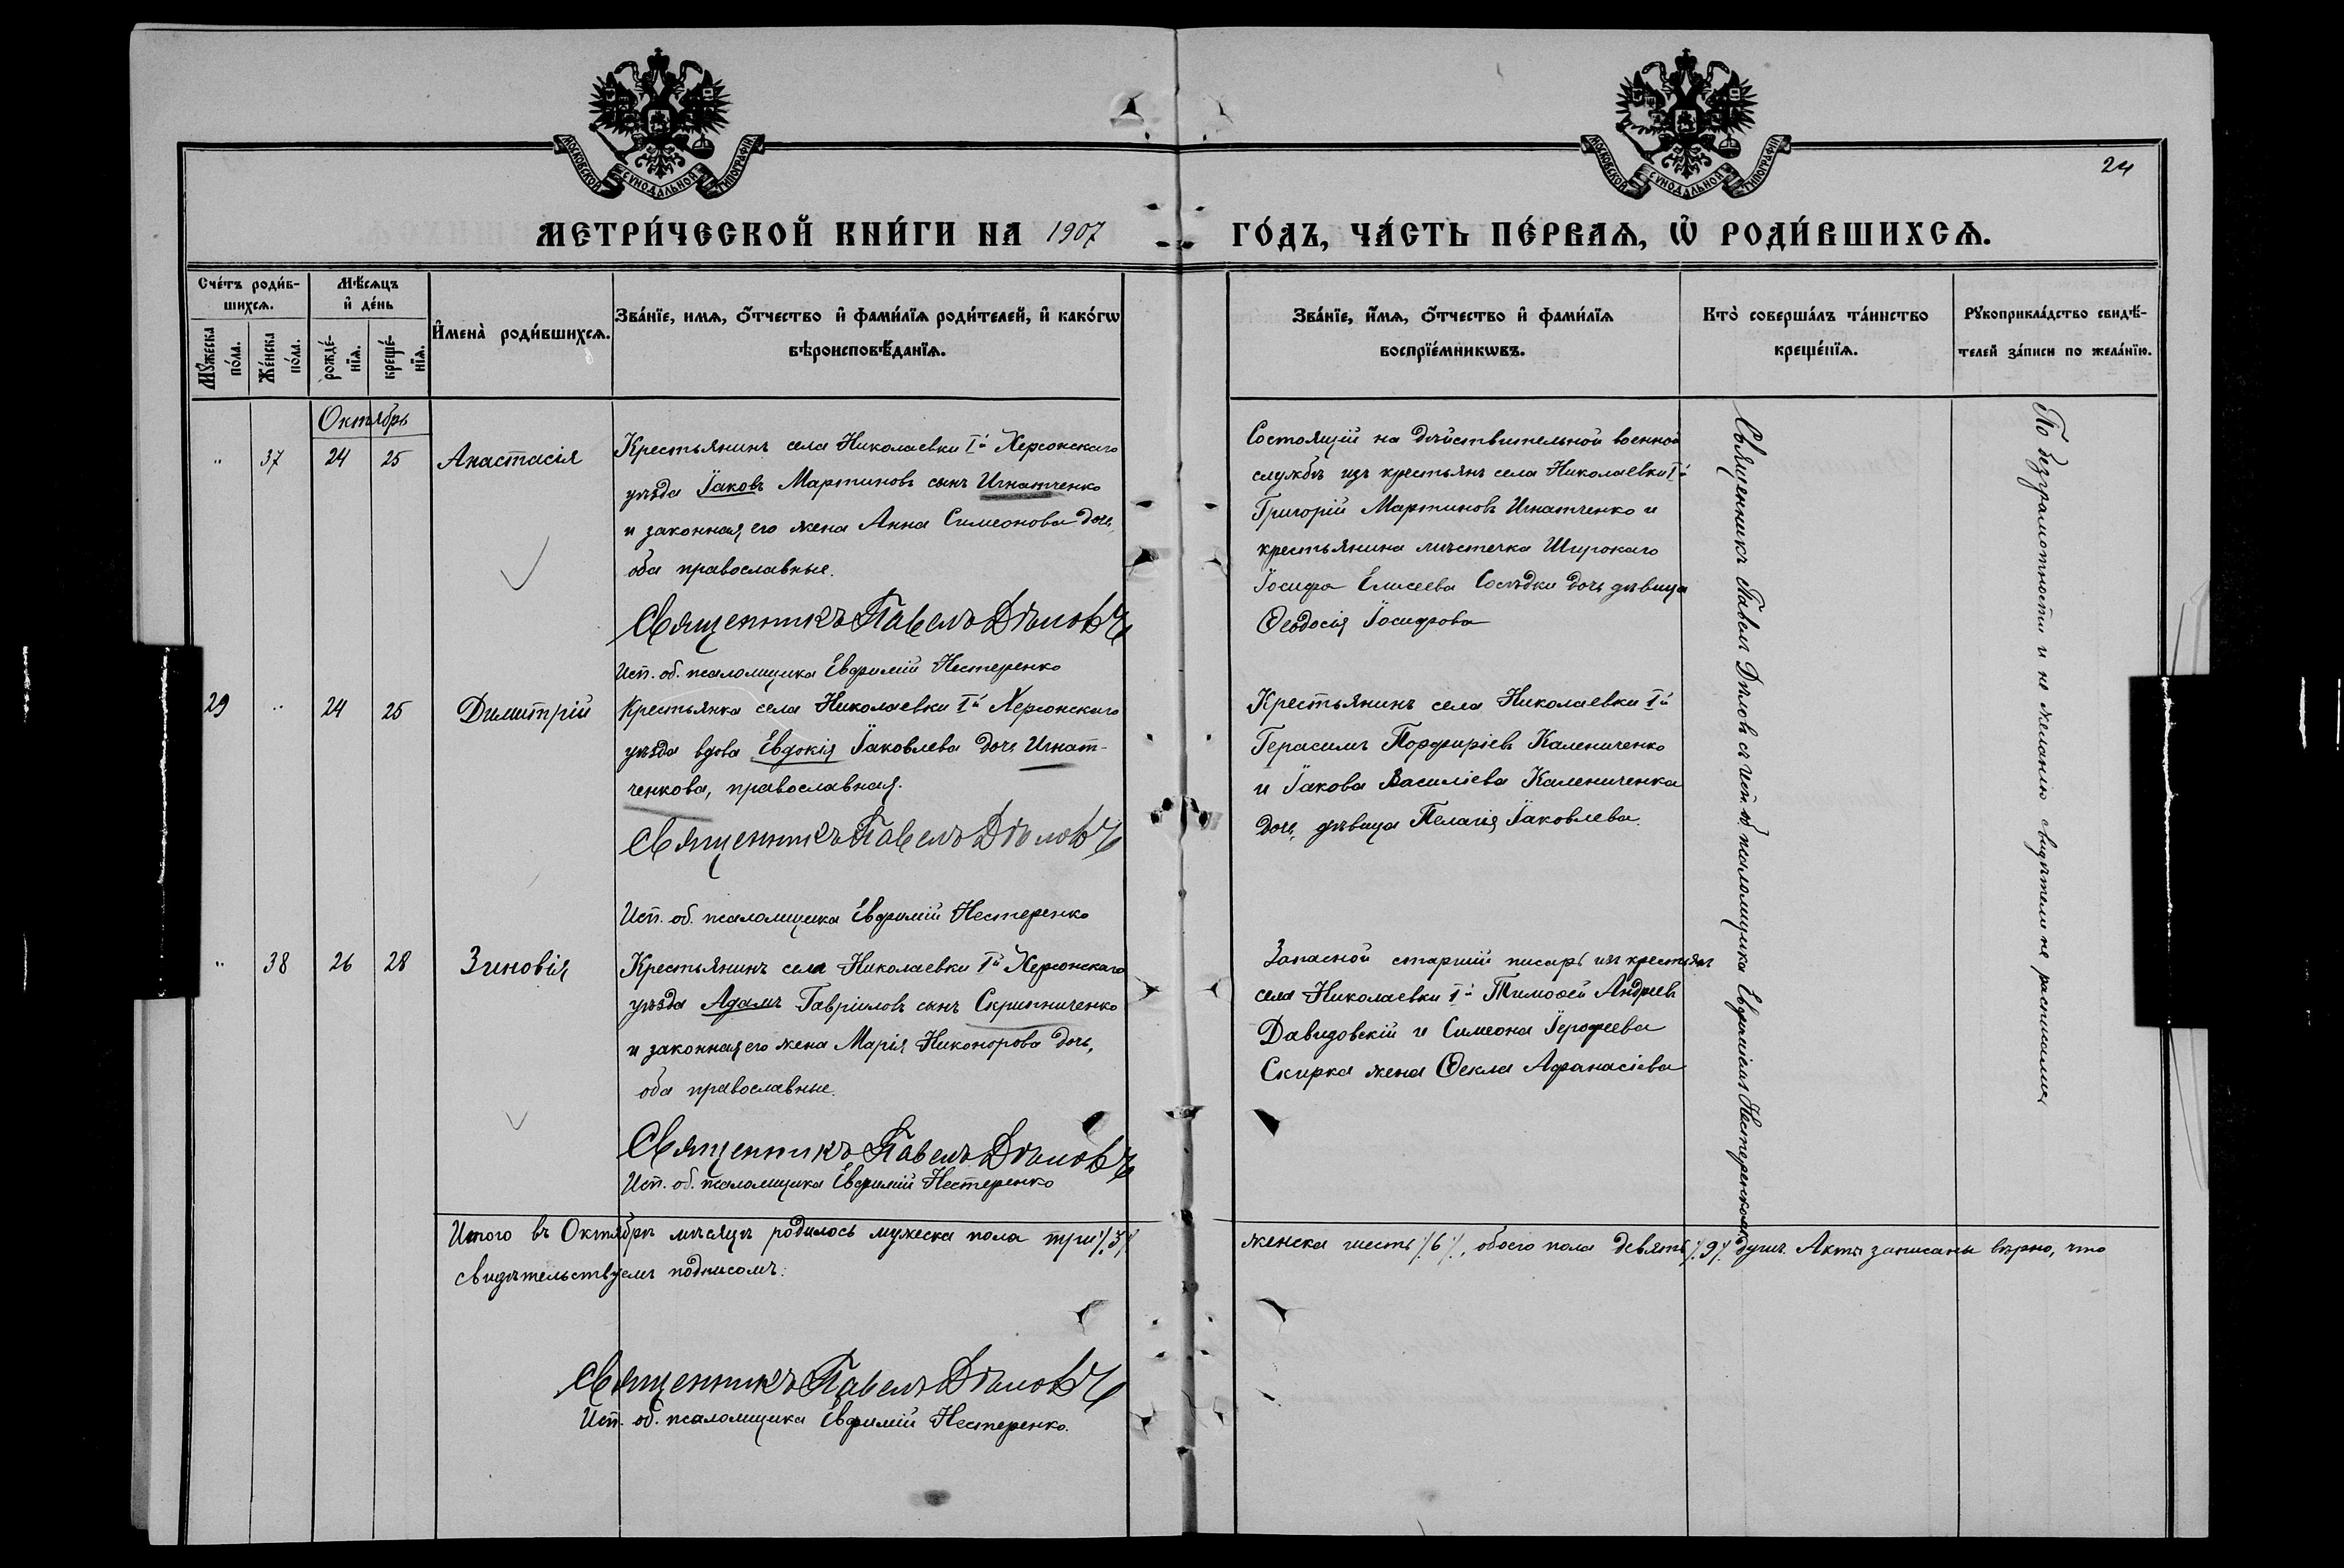 МОСКОВСКОЙ СѴНОДАЛЬНОЙ ТИПОГРАФІИ
МОСКОВСКОЙ СѴНОДАЛЬНОЙ ТИПОГРАФІИ
24
МЕТРИ́ЧЕСКОЙ КНИ́ГИ НА 1907 ГО́ДЪ, ЧА́СТЬ ПЕ́РВАѦ, Ѡ҆ РОДИ́ВШИХСѦ.
Сче́тъ роди́в-
шихсѧ.
Мꙋ́жеска по́ла.
Же́нска по́ла.
Мѣ́сѧцъ
и҆ де́нь
рожде́-
нїѧ.
креще́-
нїѧ.
И҆мена̀ роди́вшихсѧ.
Зва́нїе, имѧ, ѻ҆́тчество и҆ фами́лїѧ роди́телей, и҆ како́гѡ
вѣроисповѣ́данїѧ.
Зва́нїе, и҆́мѧ, ѻ҆́тчество и҆ фами́лїѧ
воспрїе́мникѡвъ.
Кто̀ соверша́лъ та́инство
креще́нїѧ.
Рꙋкоприкла́дство свидѣ́-
телей за́писи по жела́нїю.
Октябрь
" 37 24 25 Анастасія
Крестьянинъ села Николаевки Iй Херсонскаго
уѣзда Іаковъ Мартиновъ сынъ Игнатченко
и законная его жена Анна Симеонова дочь,
оба православные.
Священникъ Павелъ Дѣловъ
Исп. об. псаломщика Евфимій Нестеренко
Состоящій на дѣйствительной военной
службѣ изъ крестьянъ села Николаевки Iй
Григорій Мартиновъ Игнатченко и
крестьянина мѣстечка Широкаго
Іосифа Елисеева Сосѣдки дочь дѣвица
Ѳеодосія Іосифова
29 " 24 25 Димитрій
Крестьянка села Николаевки Iй Херсонскаго
уѣзда вдова Евдокія Іаковлева дочь Игнат-
ченкова, православная.
Священникъ Павелъ Дѣловъ
Исп. об. псаломщика Евфимій Нестеренко
Крестьянинъ села Николаевки Iй
Герасимъ Порфиріевъ Калениченко
и Іакова Василіева Калениченка
дочь, дѣвица Пелагія Іаковлева.
" 38 26 28 Зиновія
Крестьянинъ села Николаевки Iй Херсонскаго
уѣзда Адамъ Гавріиловъ сынъ Скрипниченко
и законная его жена Марія Никонорова дочь,
оба православные.
Священникъ Павелъ Дѣловъ
Исп. об. псаломщика Евфимій Нестеренко
Запасной старшій писарь изъ крестьянъ
села Николаевки Iй Тимоѳей Андреевъ
Давидовскій и Симеона Іерофеева
Скирка жена Ѳекла Афанасіева
Священникъ Павелъ Дѣловъ съ исп. об. псаломщика Евфиміемъ Нестеренкомъ
По безграмотности и не желанію свидѣтели не расписались
Итого въ Октябрѣ мѣсяцѣ родилось мужеска пола три /.3/. женска шесть /.6/., обоего пола девять /.9/. душъ. Акты записаны вѣрно, что
свидѣтельствуемъ подписомъ:
Священникъ Павелъ Дѣловъ
Исп. об. псаломщика Евфимій Нестеренко.